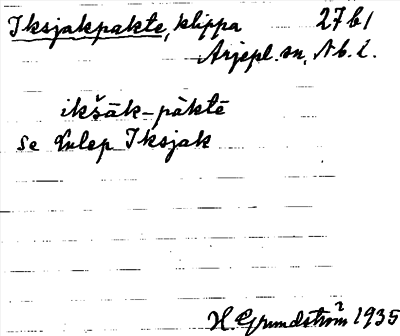 Iksjakpakte, klippa 27 b 1
Arjepl. sn, Nb. l.
ikšāk-pàktē
se Lulep Iksjak
H. Grundström 1935